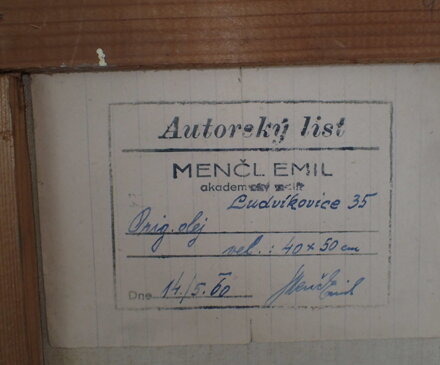 Autorský list
MENČL EMIL
akadem
Ludvíkovice 35
Orig. olej
vel.: 40 x 50 cm
Dne 14./5. 60 Menčl Emil